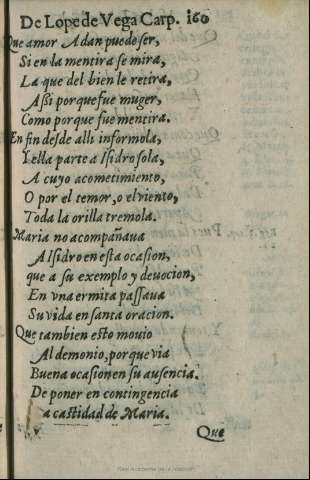 De Lope de Vega Carp. 160
Que amor Adan puede ser,
Si en la mentira se mira,
La que del bien le retira,
Assi porque fue muger,
Como porque fue mentira.
En fin desde alli informola,
Y ella parte a Isidro sola,
A cuyo acometimiento,
O por el temor, o el viento,
Toda la orilla tremola.
Maria no acompañaua
A Isidro en esta ocasion,
que a su exemplo y deuocion,
En vna ermita passaua
Su vida en santa oracion.
Que tambien esto mouio
Al demonio, porque via
Buena ocasion en su ausencia.
De poner en contingencia
a castidad de Maria.
Que